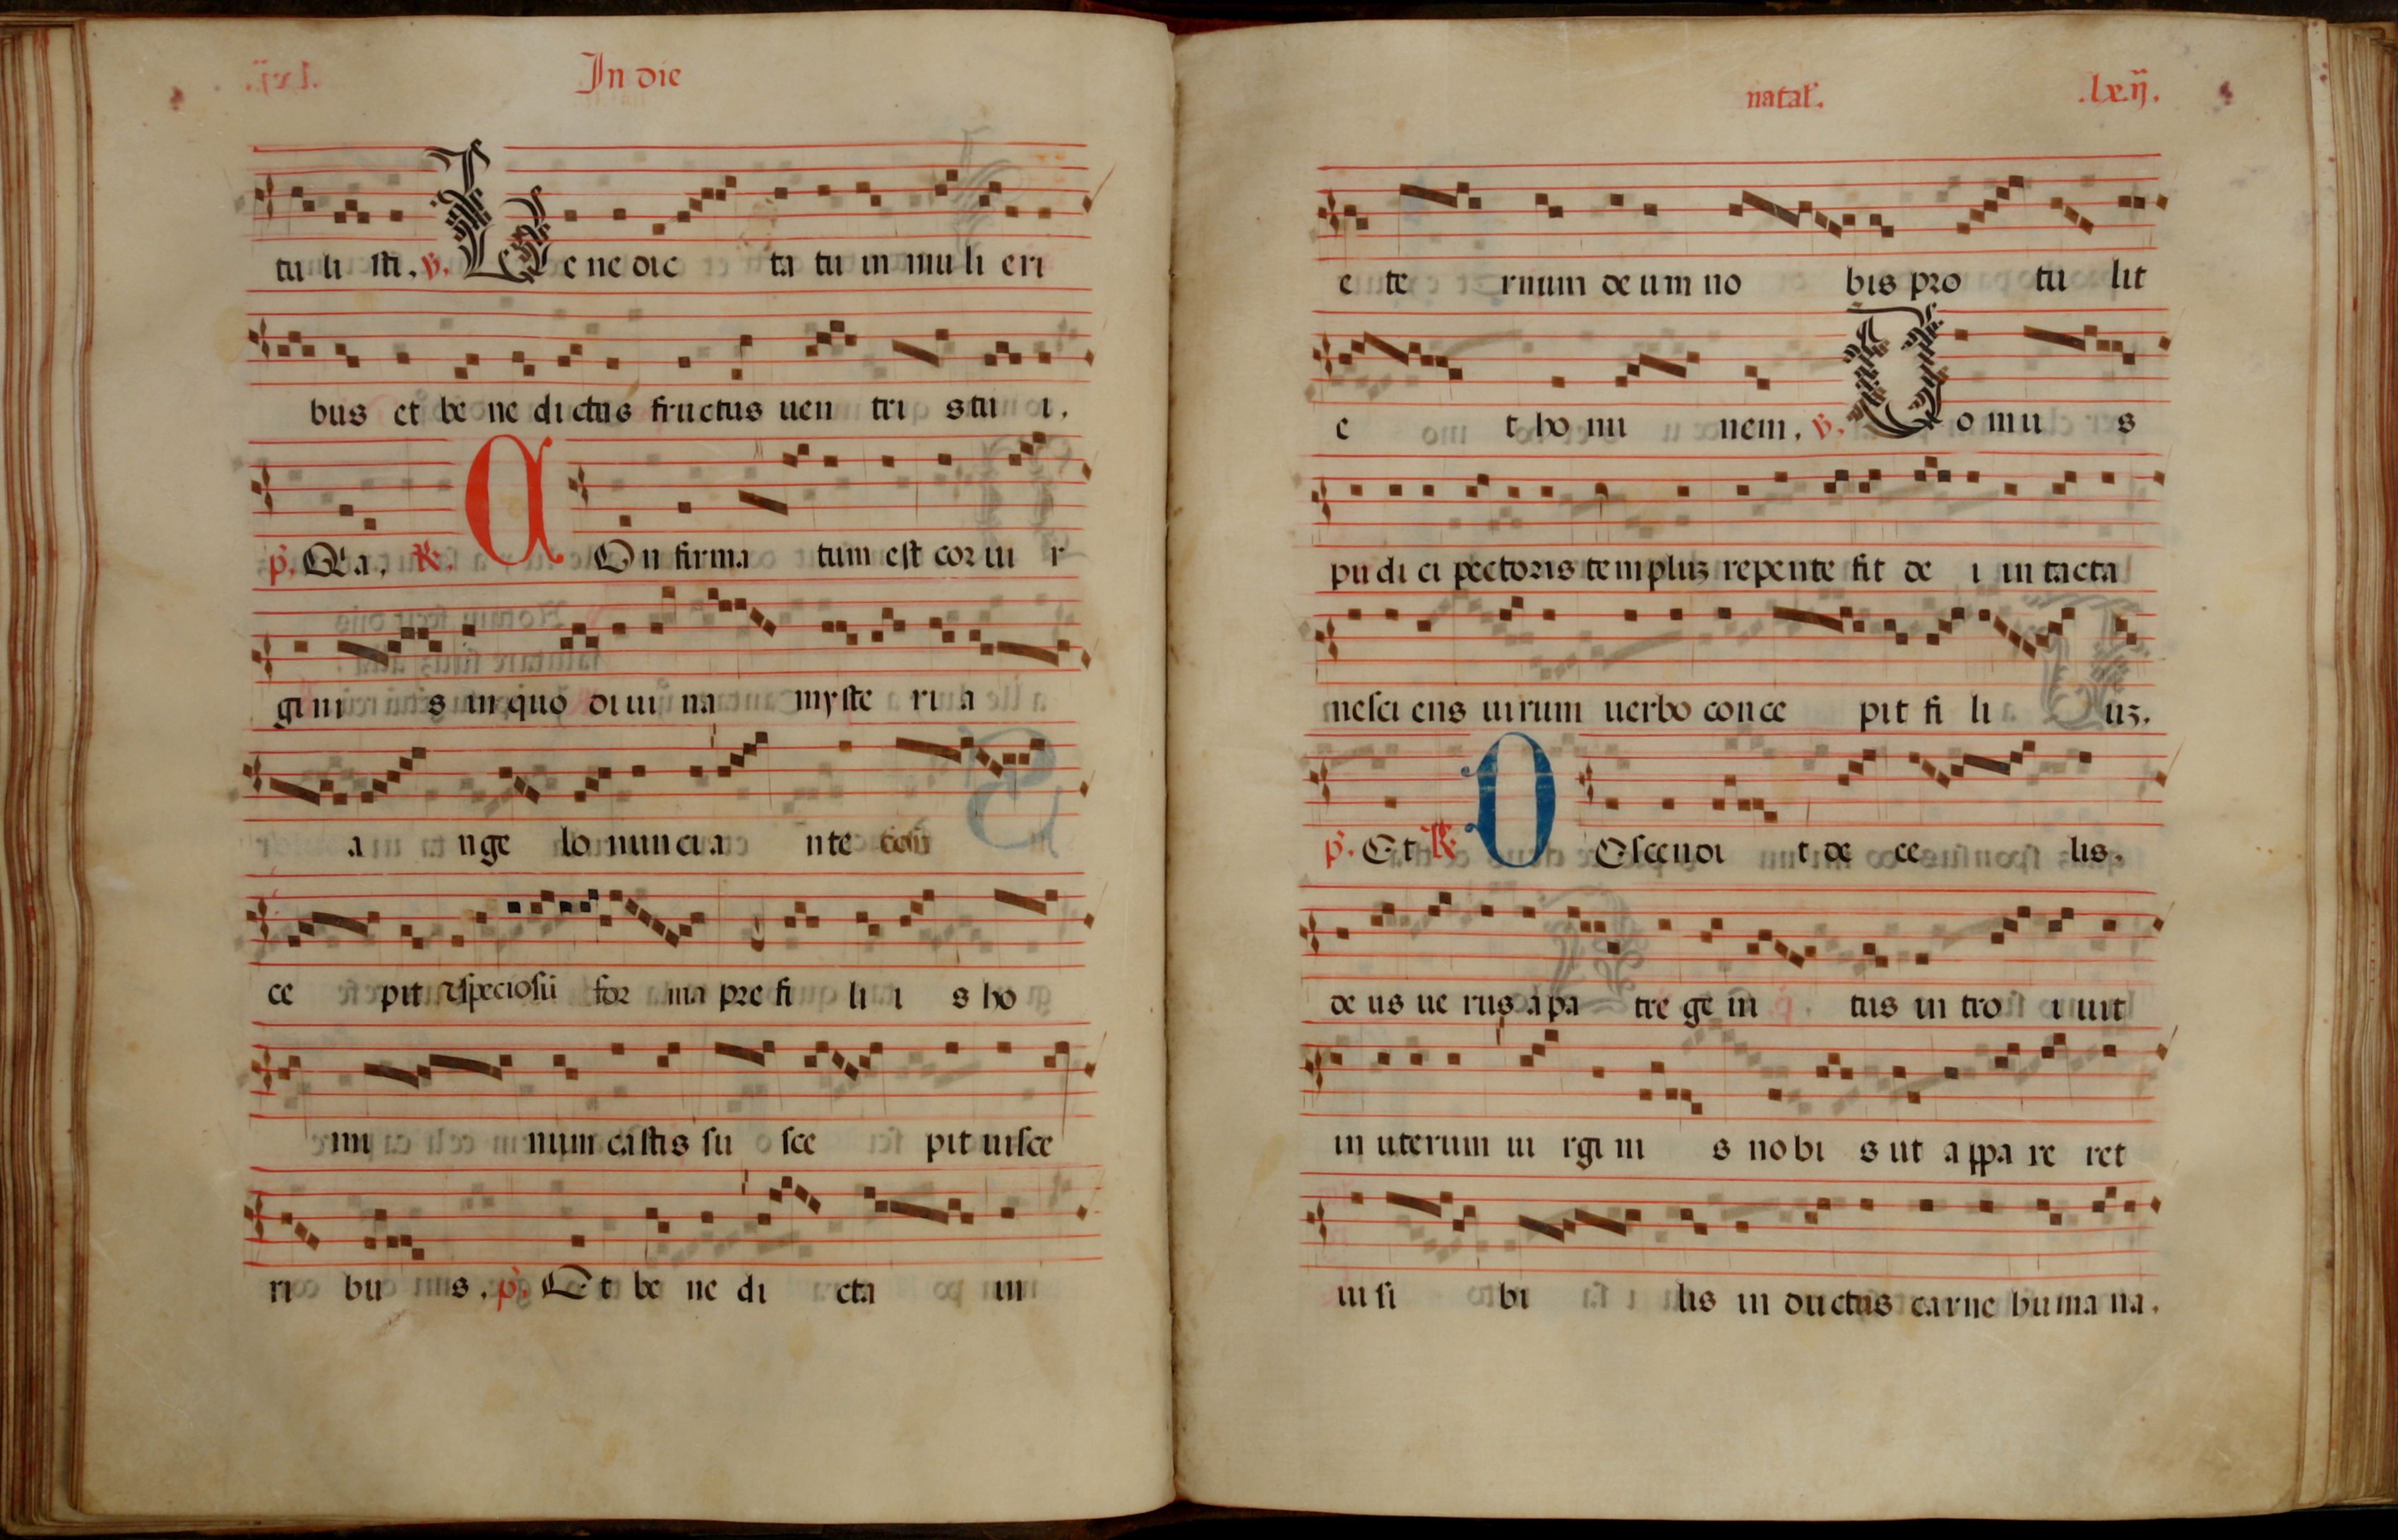 In die
tu li sti. v. Be ne dic ta tu in mu li eri
bus et be ne di ctus fructus uen tri s tu i.
p. Qia. R. COn firma tum est cor ui r
gi ni s in quo diui na myste ri a
a nge lo nuncia nte con
ce pit speciosū for ma pre fi li i s ho
mi num castis su sce pit uisce
ri bu s. p. Et be ne di cta in
natal. .lxij.
e te rnum deum no bis pro tu lit
e t ho mi nem. v. Domu s
pu di ci pectoris templuz repente fit de i in tacta
nesci ens uirum uerbo conce pit fi li uz.
p. Et R. DEscendi t de ce lis.
de us ue rus a pa tre ge ni tus in tro i uit
in uterum ui rgi ni s nobi s ut appa re ret
ui si bi lis in ductus carne huma na.